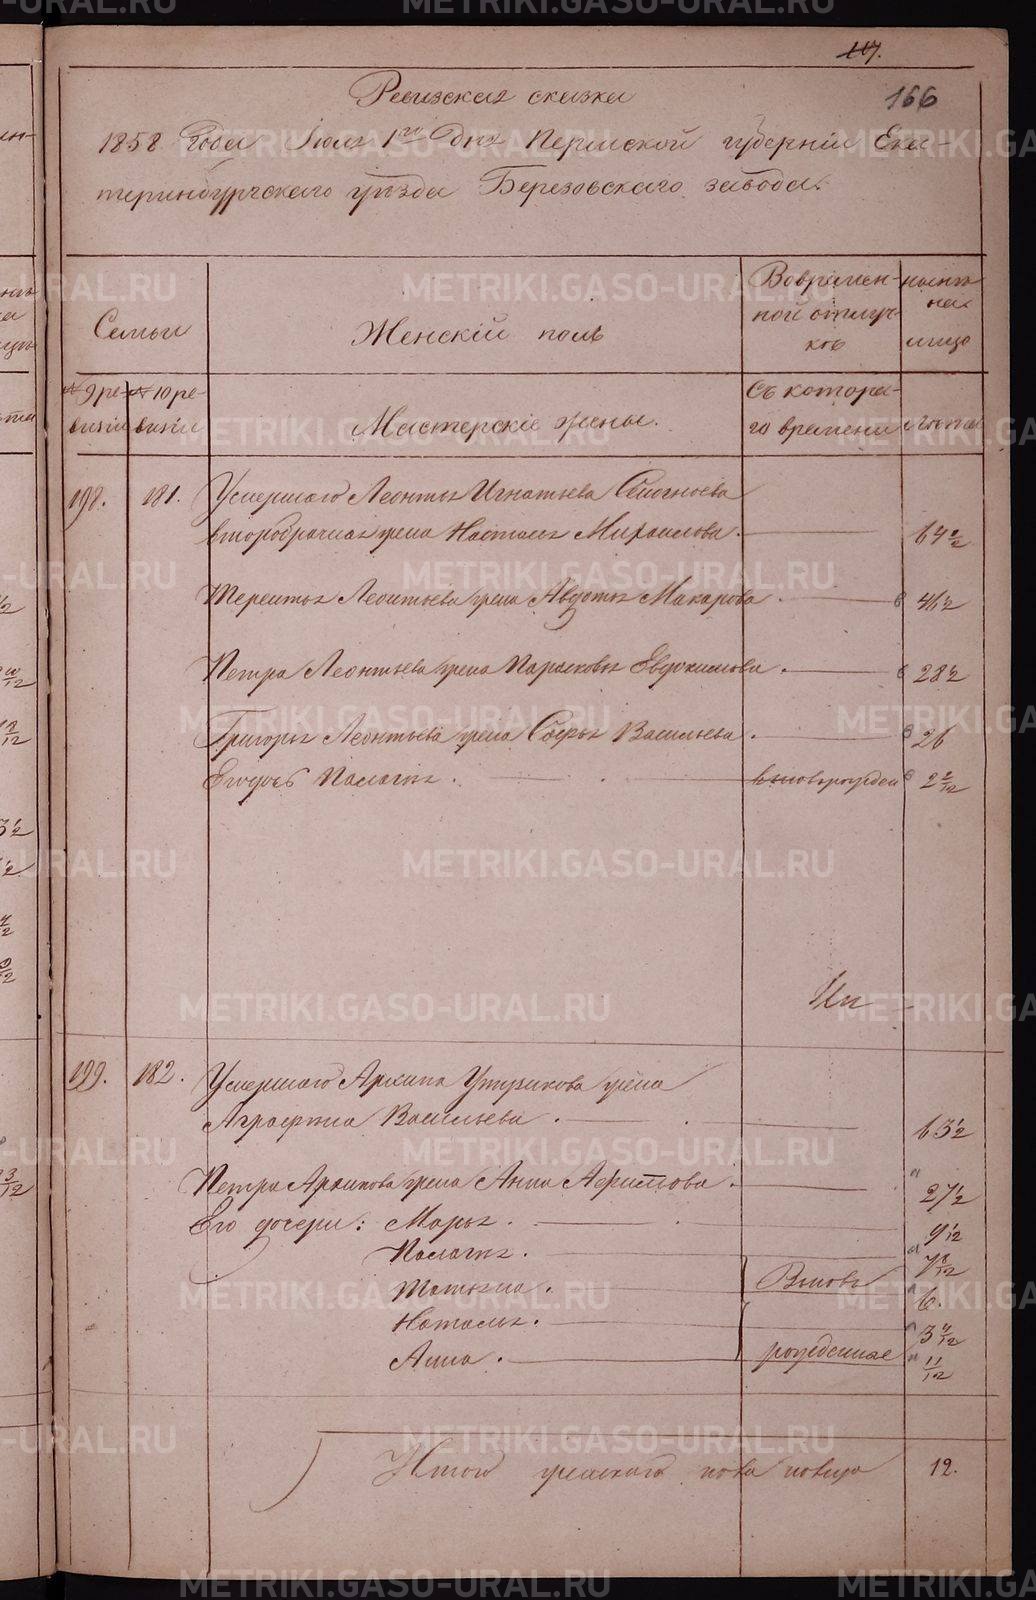 117.
166
Ревизская сказка
1858 года Июля 1го дня Пермской губернии Ека-
теринбургскаго уезда Березовскаго завода.
Семьи
Женский полъ
Вовремен-
ной отлуч-
ке
ныне
на
лицо
№ 9 ре-
визии
№ 10 ре-
визии
Мастерские жены.
Съ котора-
го времени
лета
198. 181. Умершаго Леонтья Игнатьева
второбрачная жена Наталья Михаилова. 64 1/2
Терентья Леонтьева жена Авдотья Макарова. 46 1/2
Петра Леонтьева жена Парасковья Евдокимова. 28 1/2
Григорья Леонтьева жена Софья Васильева. 26
Пелагея. вновьрожден 2 2/12
199. 182. Умершаго Архипа жена
Аграфена Васильева. 63 1/2
Петра Архипова жена Анна 27 1/2
Его дочери: Марья. 9 1/2
Пелагея. 7 8/12
Татьяна. Вновь 6.
Наталья. 3 4/12
Анна. рожденные 11/12
Итого женскаго пола 12.
METRIKI.GASO-URAL.RU